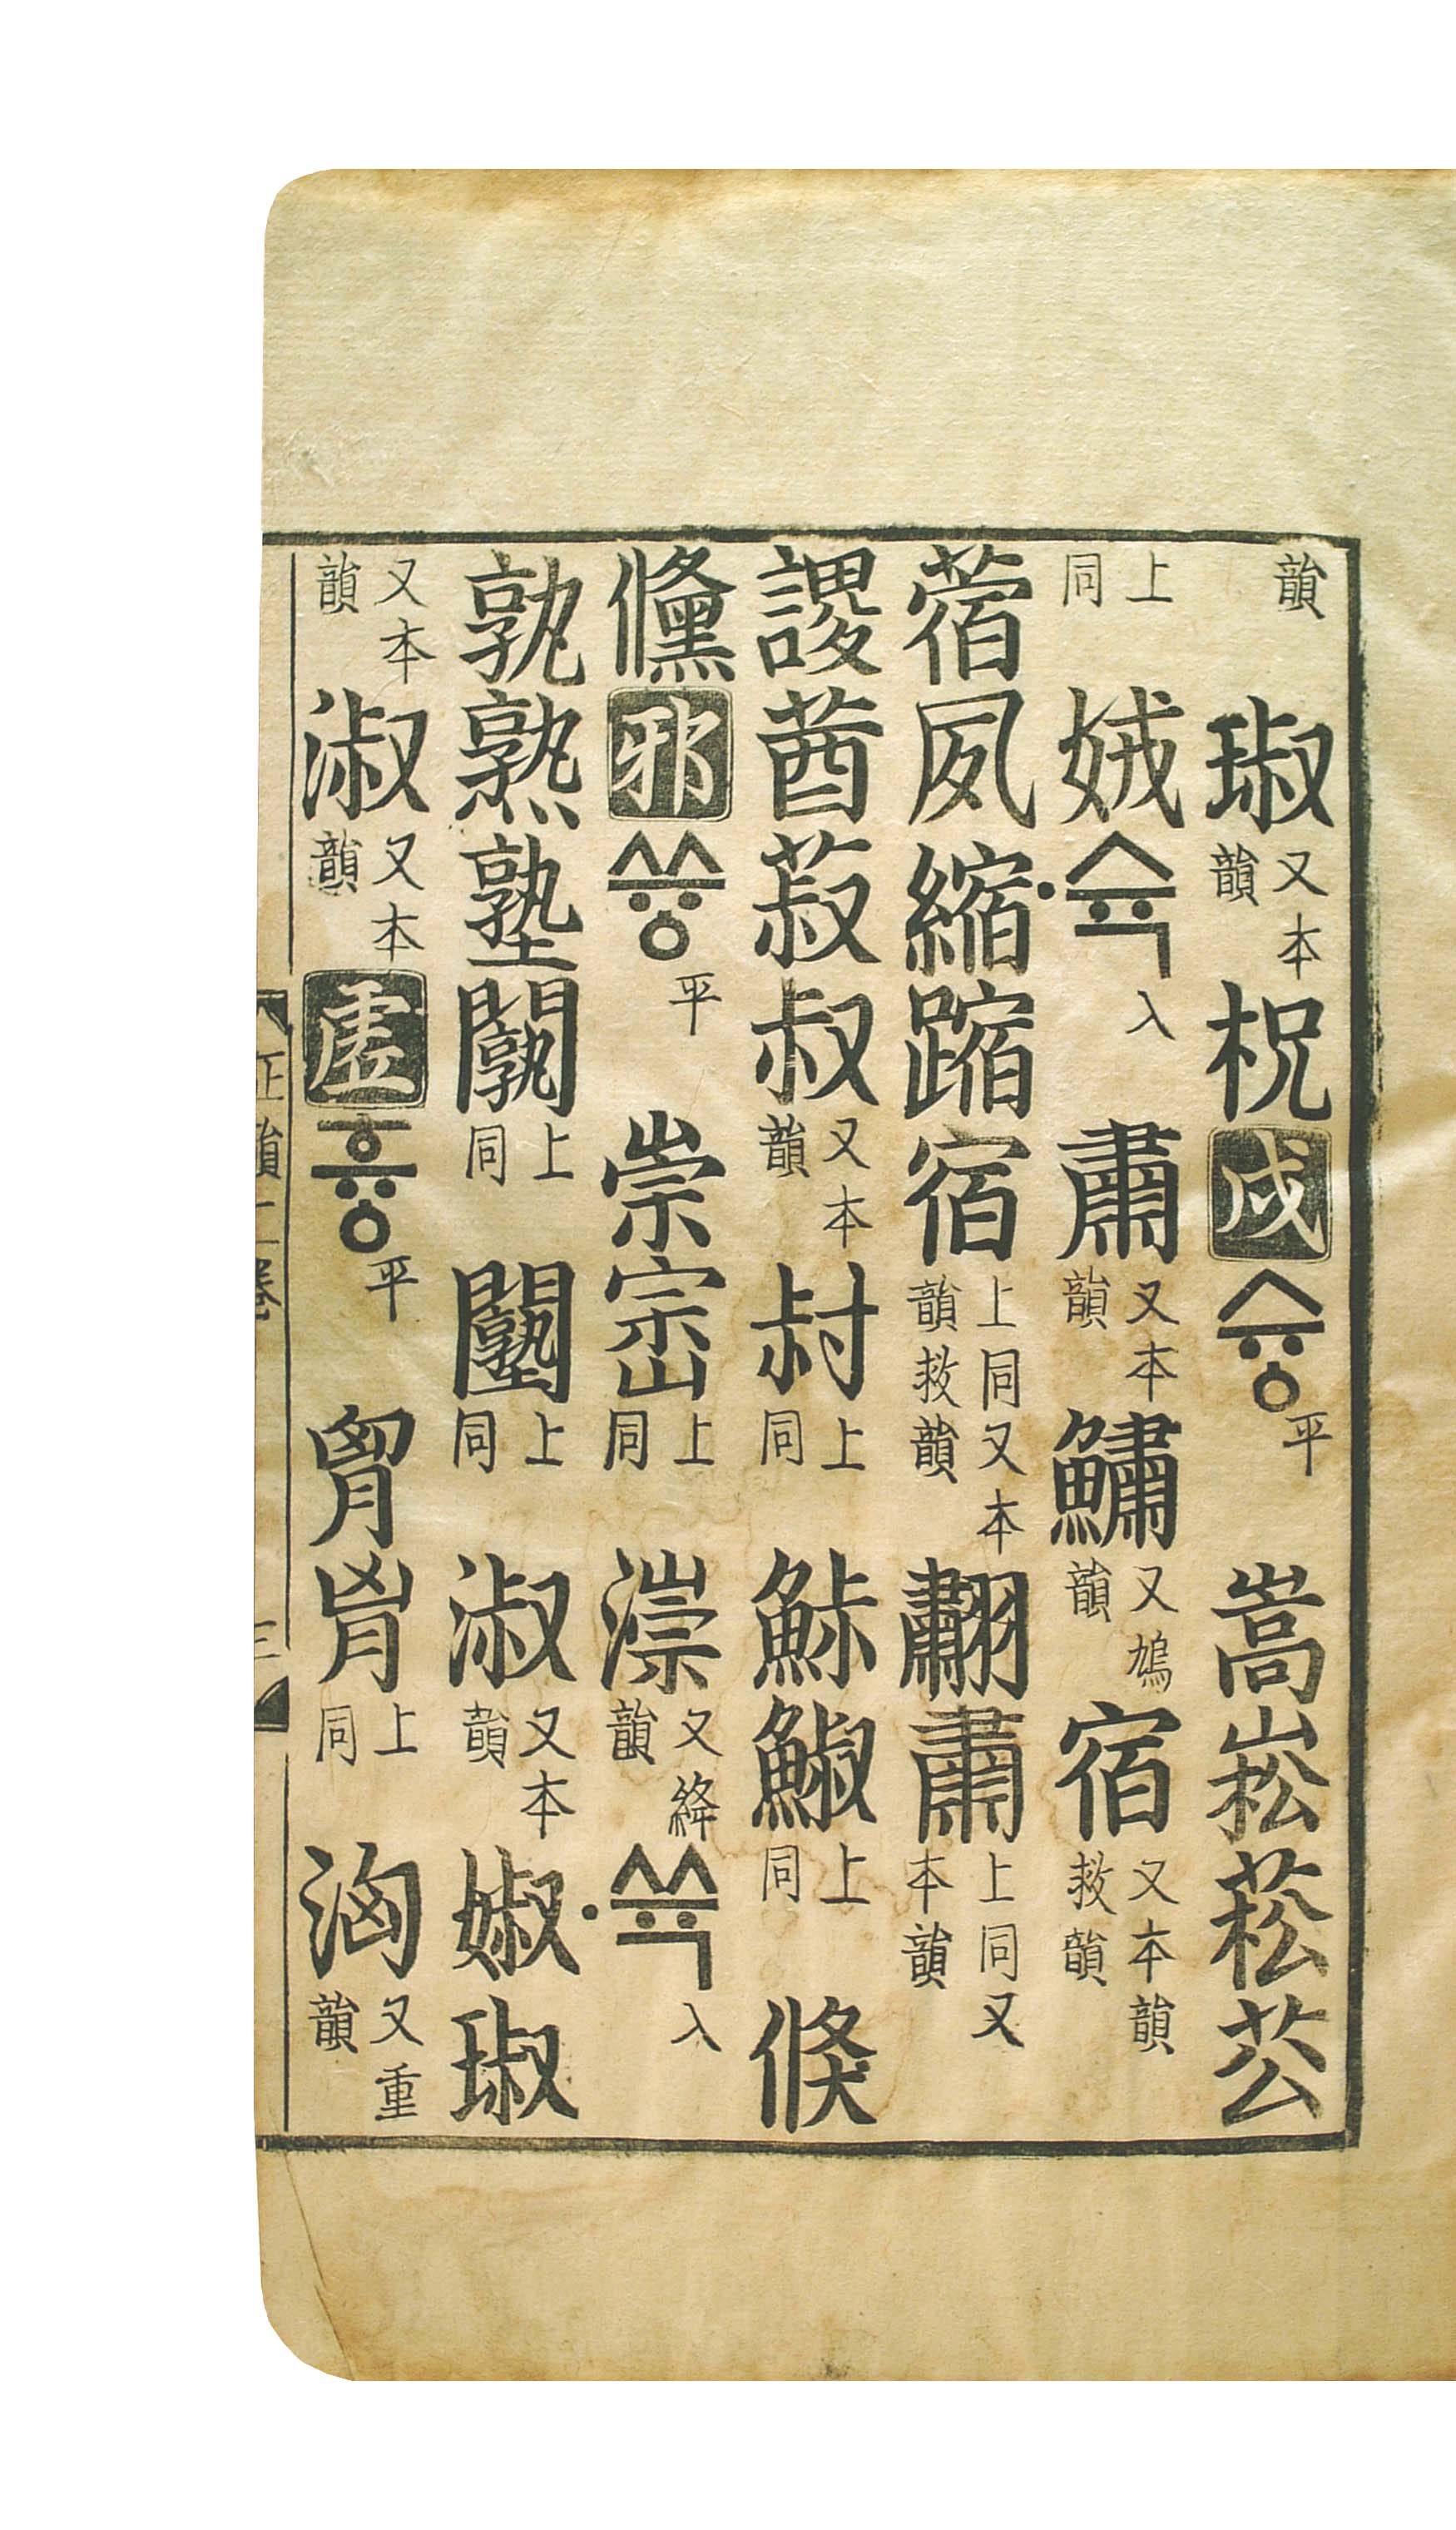 韻 琡 又本韻 柷 戌 슈ᇰ 平 嵩崧菘
上同 娀 ·슉 入 肅 又本韻 鱐 又鳩韻 宿 又本韻救韻
蓿夙縮蹜宿 上同又本韻救韻 肅 上同又本韻
謖茜菽叔 又本韻 上同 鮛 上同 倏
儵 邪 쓔ᇰ 平 崇崈 上同 漴 又絳韻 ·쓕 入
孰熟塾 上同 上同 淑 又本韻 婌琡
又本韻 淑 又本韻 虛 휴ᇰ 平 胷 上同 洶 又重韻
正韻二卷 三